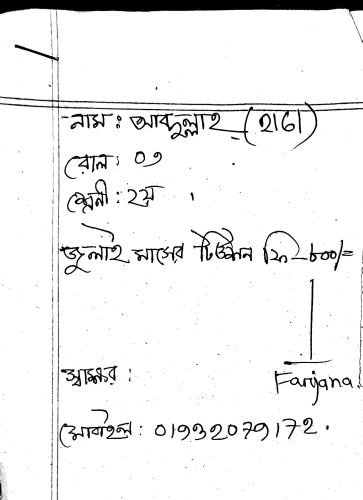 নাম : আবদুল্লাহ (হাতী)
রোল : ০৩
শ্রেনী : ২য়
জুলাই মাসের টিউশন ফি - ৮০০/=
স্বাক্ষর :
Farijana.
মোবাইল : 01932079172.